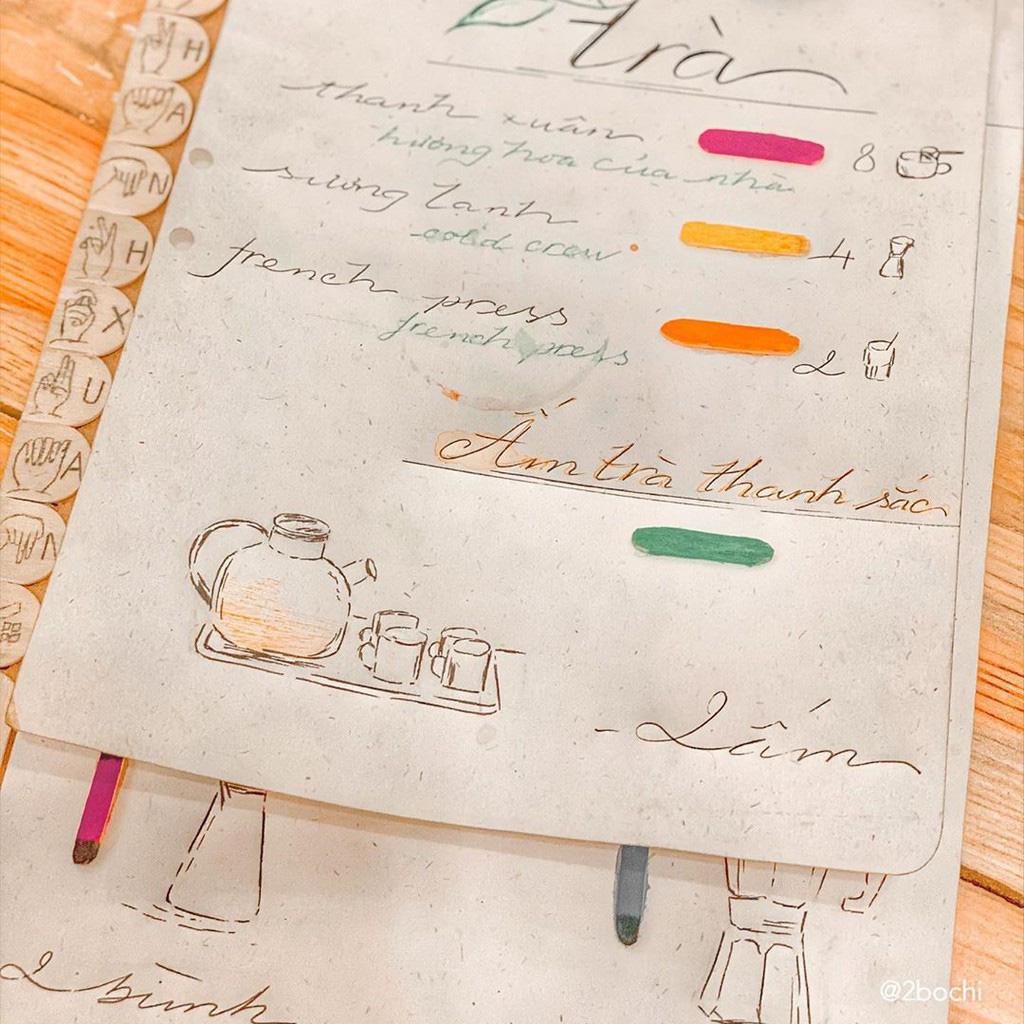 trà
thanh xuân
8
hương hoa của nhà
sương lạnh
cold crew
4
french press
french press
2
Ấm trà thanh sắc
- Lắm
2 bình
H
A
N
H
X
U
A
N
@2bochi